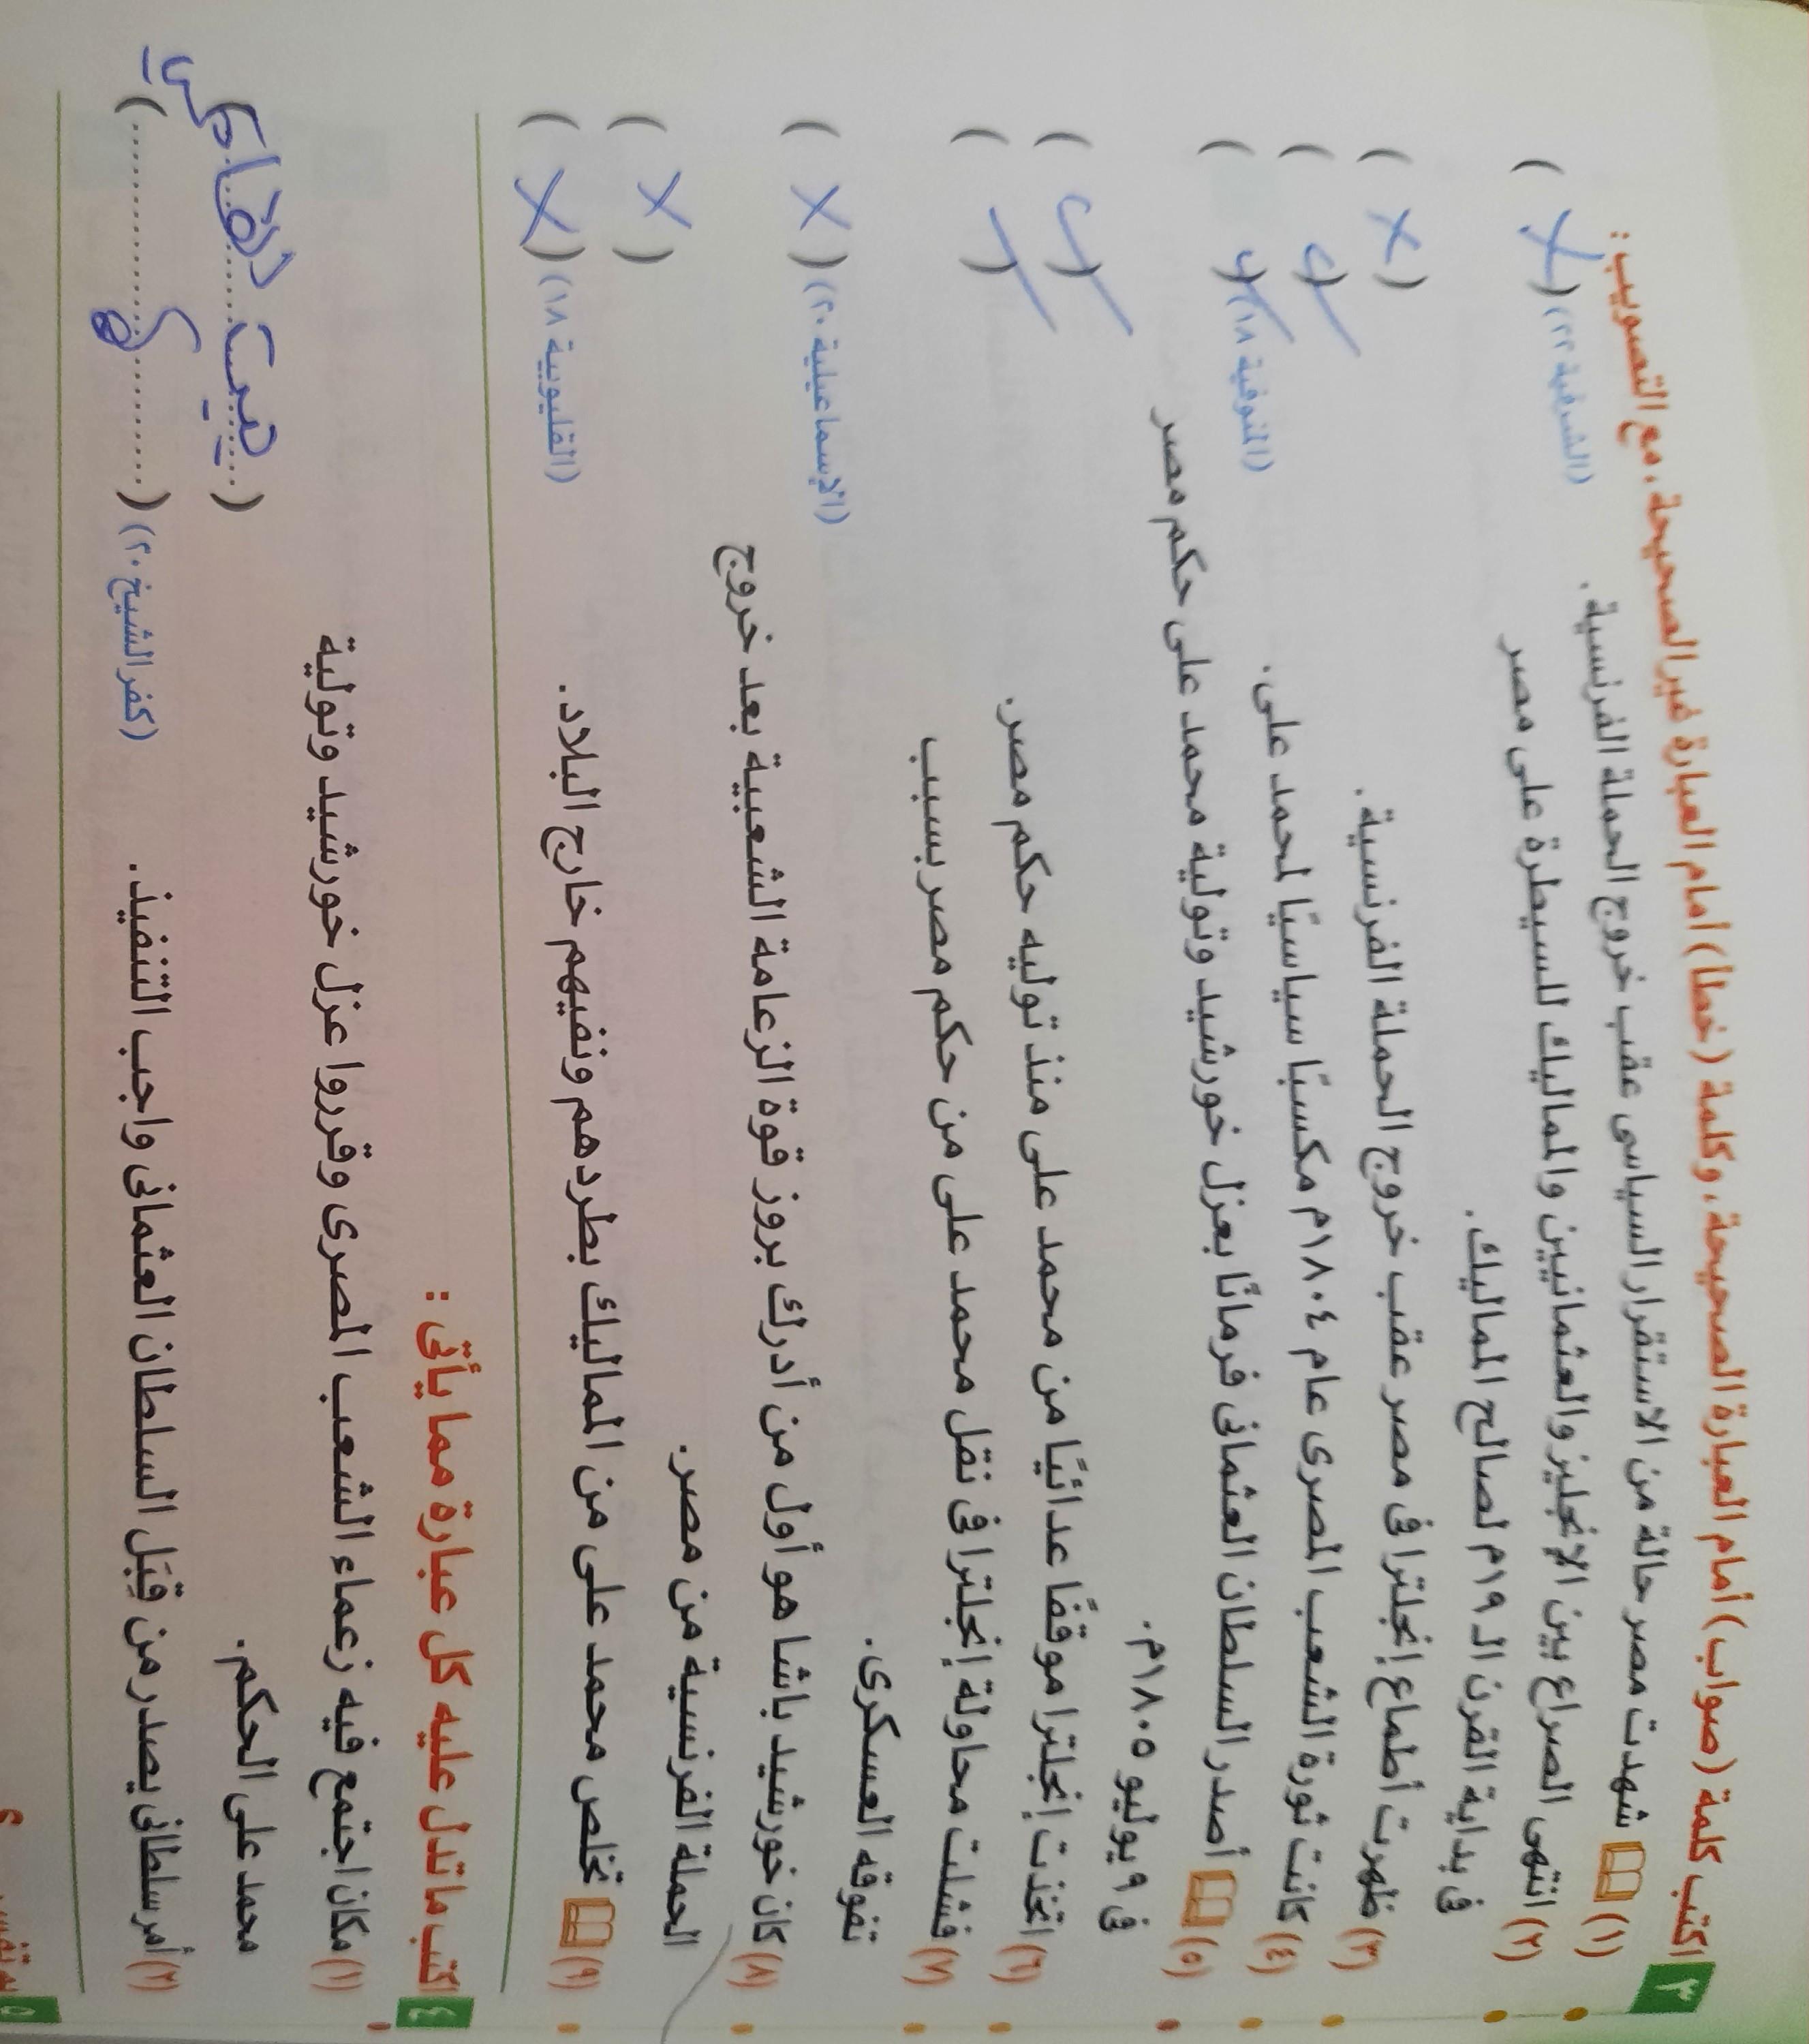 ٣ اكتب كلمة (صواب) أمام العبارة الصحيحة، وكلمة (خطأ) أمام العبارة غير الصحيحة، مع التصويب:
(١) شهدت مصر حالة من الاستقرار السياسى عقب خروج الحملة الفرنسية. (الشرقية ٢٢) ( X )
(٢) انتهى الصراع بين الإنجليز والعثمانيين والمماليك للسيطرة على مصر
فى بداية القرن الـ ١٩م لصالح المماليك. ( X )
(٣) ظهرت أطماع إنجلترا فى مصر عقب خروج الحملة الفرنسية. ( ✓ )
(٤) كانت ثورة الشعب المصرى عام ١٨٠٤م مكسبًا سياسيًا لمحمد على. (المنوفية ١٨) ( ✓ )
(٥) أصدر السلطان العثمانى فرمانًا بعزل خورشيد وتولية محمد على حكم مصر
فى ٩ يوليو ١٨٠٥م. ( ✓ )
(٦) اتخذت إنجلترا موقفًا عدائيًا من محمد على منذ توليه حكم مصر. ( ✓ )
(٧) فشلت محاولة إنجلترا فى نقل محمد على من حكم مصر بسبب
تفوقه العسكرى. (الإسماعيلية ٢٠) ( X )
(٨) كان خورشيد باشا هو أول من أدرك بروز قوة الزعامة الشعبية بعد خروج
الحملة الفرنسية من مصر. ( X )
(٩) تخلص محمد على من المماليك بطردهم ونفيهم خارج البلاد. (القليوبية ١٨) ( X )
٤ اكتب ما تدل عليه كل عبارة مما يأتى:
(١) مكان اجتمع فيه زعماء الشعب المصرى وقرروا عزل خورشيد وتولية
محمد على الحكم. (بيت القاضي)
(٢) أمر سلطانى يصدر من قِبَل السلطان العثمانى واجب التنفيذ. (كفر الشيخ ٢٠) (..............................)
٥